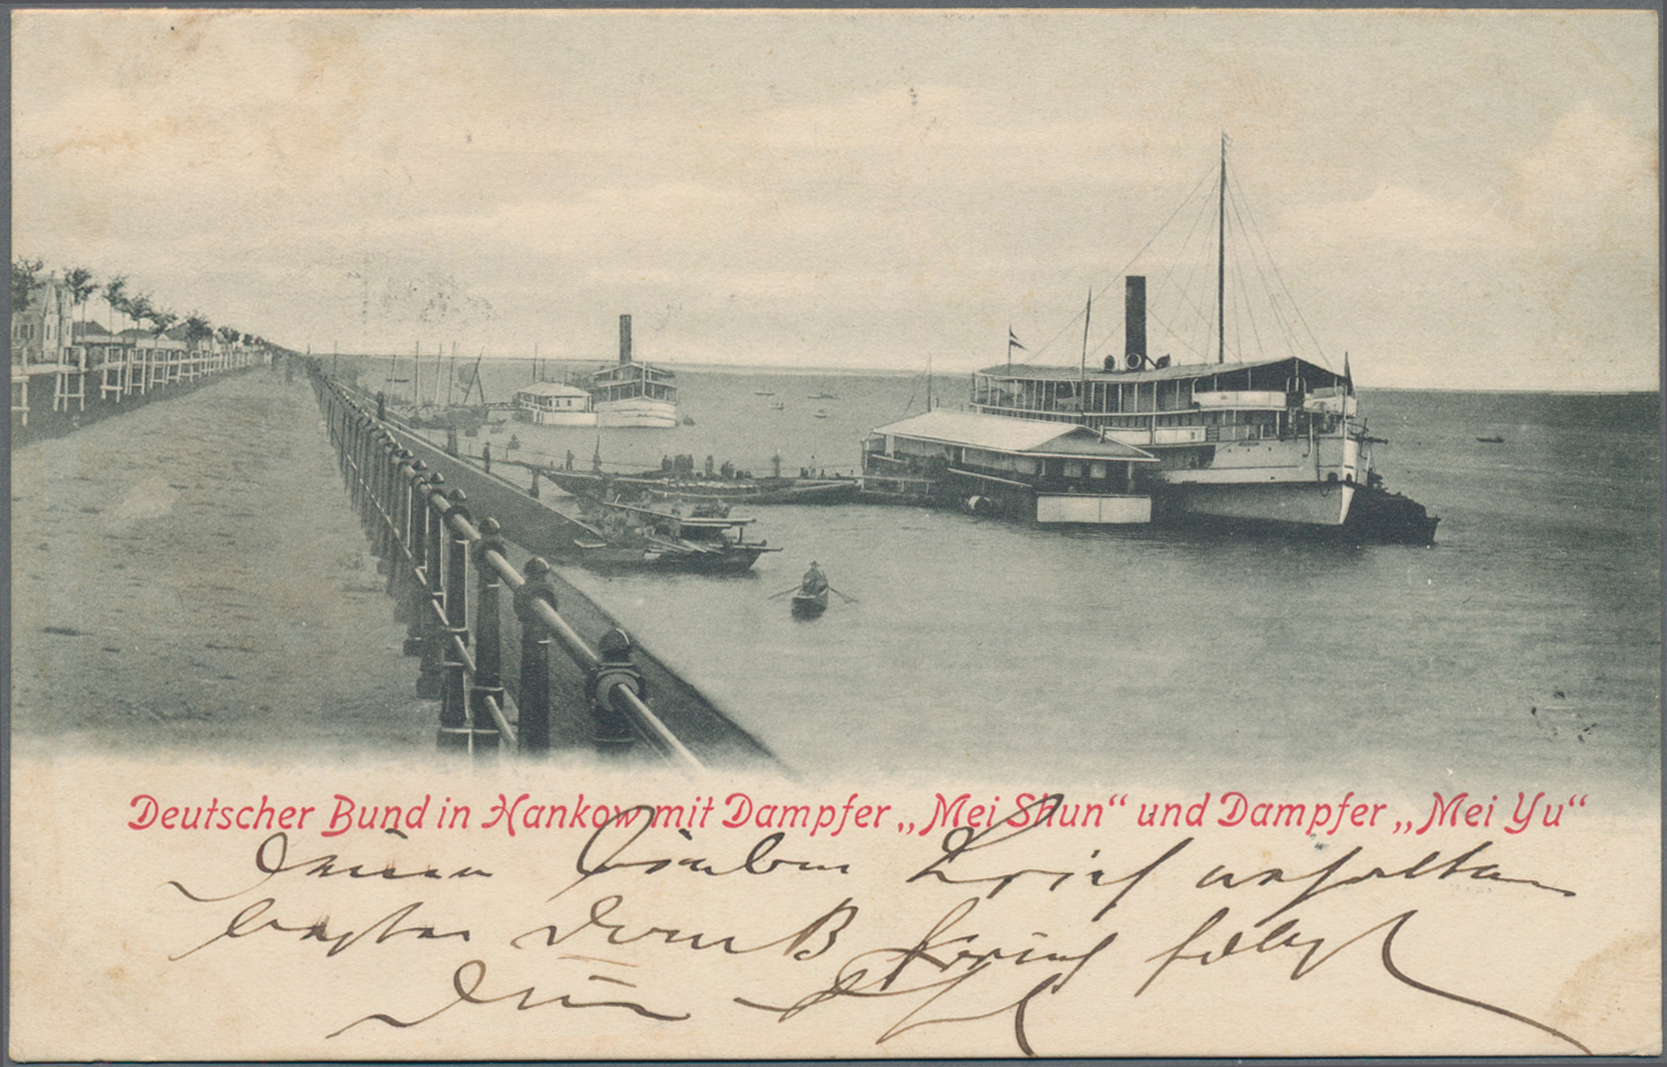 Deutscher Bund in Hankow mit Dampfer „Mei Shun“ und Dampfer „Mei Yu“
Deinen lieben Brief erhalten
besten Dank Brief folgt
Dein